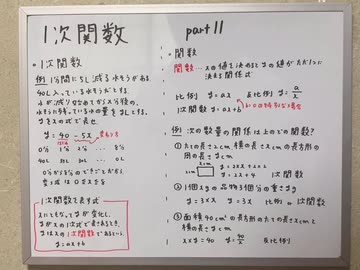 1次関数 part 11
○1次関数
例 1分間に5L減る水そうがある。
40L入っている水そうだとする。
水が減りはじめてからx分後の、
水そうに残っている水の量をyLとする。
yをxの式で表せ
y = 40 - 5x
0分 1分 2分 … 8分
40L 35L 30L … 0L
1次関数を表す式
xにともなってyが変化し、
yがxの1次式で表せるとき、
yはxの1次関数であるという。
y = ax + b
○関数
関数… xの値を決めるとyの値がただ1つに
決まる関係式
比例 y = ax 反比例 y = a/x
1次関数 y = ax + b
例. 次の数量の関係は上のどの関数?
① たての長さ2cm、横の長さxcmの長方形の
周の長さycm
y = 2x + 2×2
y = 2x + 4 1次関数
② 1個xgの品物3個分の重さyg
y = 3×x y = 3x 比例 or 1次関数
③ 面積40cm²の長方形のたての長さxcmと
横の長さycm
x × y = 40 y = 40/x 反比例